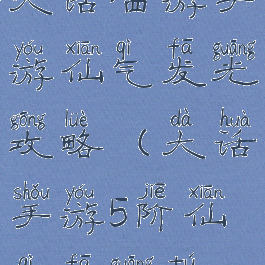 大话西游手
yóu xiān qì fā guāng
游仙气发光
gōng lüè dà huà
攻略(大话
shǒu yóu jiē xiān
手游5阶仙
qì fā guāng tú